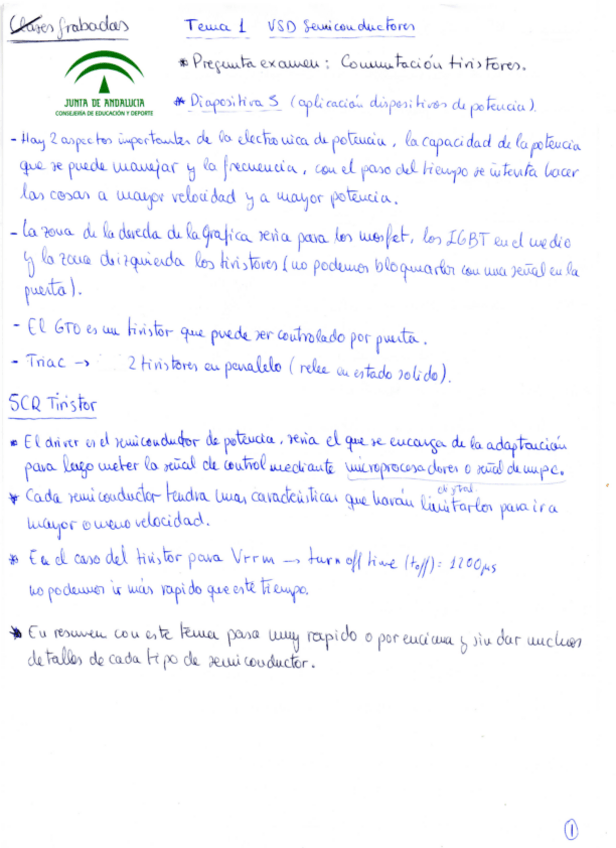 Clases grabadas
Tema 1 VSD Semiconductores
* Pregunta examen: Conmutación tiristores.
JUNTA DE ANDALUCIA
CONSEJERÍA DE EDUCACIÓN Y DEPORTE
* Diapositiva 5 (aplicación dispositivos de potencia).
- Hay 2 aspectos importantes de la electronica de potencia, la capacidad de la potencia
que se puede manejar y la frecuencia, con el paso del tiempo se intenta hacer
las cosas a mayor velocidad y a mayor potencia.
- La zona de la derecha de la grafica seria para los mosfet, los IGBT en el medio
y la zona de izquierda los tiristores (no podemos bloquearlos con una señal en la
puerta).
- El GTO es un tiristor que puede ser controlado por puerta.
- Triac -> 2 tiristores en paralelo (relee en estado solido).
SCR Tiristor
* El driver es el semiconductor de potencia, seria el que se encarga de la adaptación
para luego meter la señal de control mediante microprocesadores o señal de un pc.
digital
* Cada semiconductor tendra unas caracteristicas que haran limitarlos para ir a
mayor o meno velocidad.
* En el caso del tiristor para Vrrm -> turn off time (toff) = 1200µs
no podemos ir más rapido que este tiempo.
* En resumen con este tema pasa muy rapido o por encima y sin dar muchos
detalles de cada tipo de semiconductor.
1